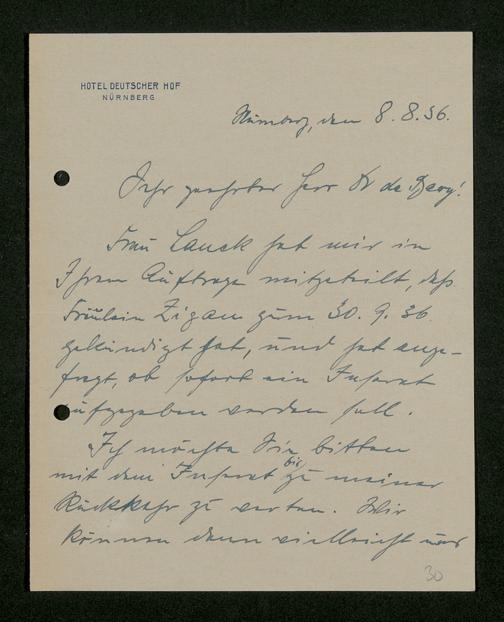 HOTEL DEUTSCHER HOF
NÜRNBERG
Nürnberg, den 8.8.36.
Sehr geehrter Herr Dr de Bary!
Frau Lauck hat mir in
Ihrem Auftrage mitgeteilt, daß
Fräulein Zigan zum 30. 9. 36.
gekündigt hat, und hat ange-
fragt, ob sofort ein Inserat
aufgegeben werden soll.
Ich möchte Sie bitten
mit dem Inserat bis zu meiner
Rückkehr zu warten. Wir
können dann vielleicht
30